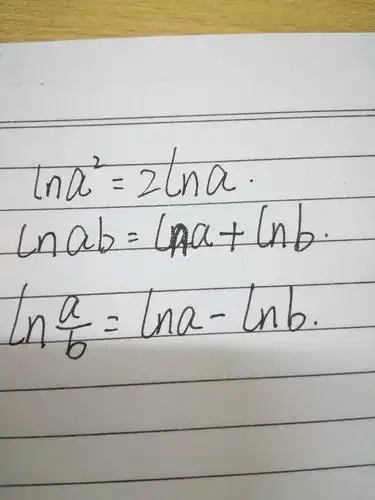 ln a² = 2 ln a.
ln ab = ln a + ln b.
ln a/b = ln a - ln b.